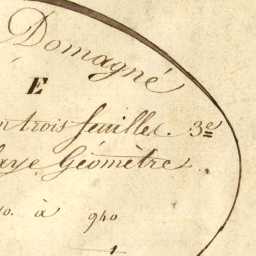 Domagné
E
en trois feuilles. 3e
Géomètre
à 940